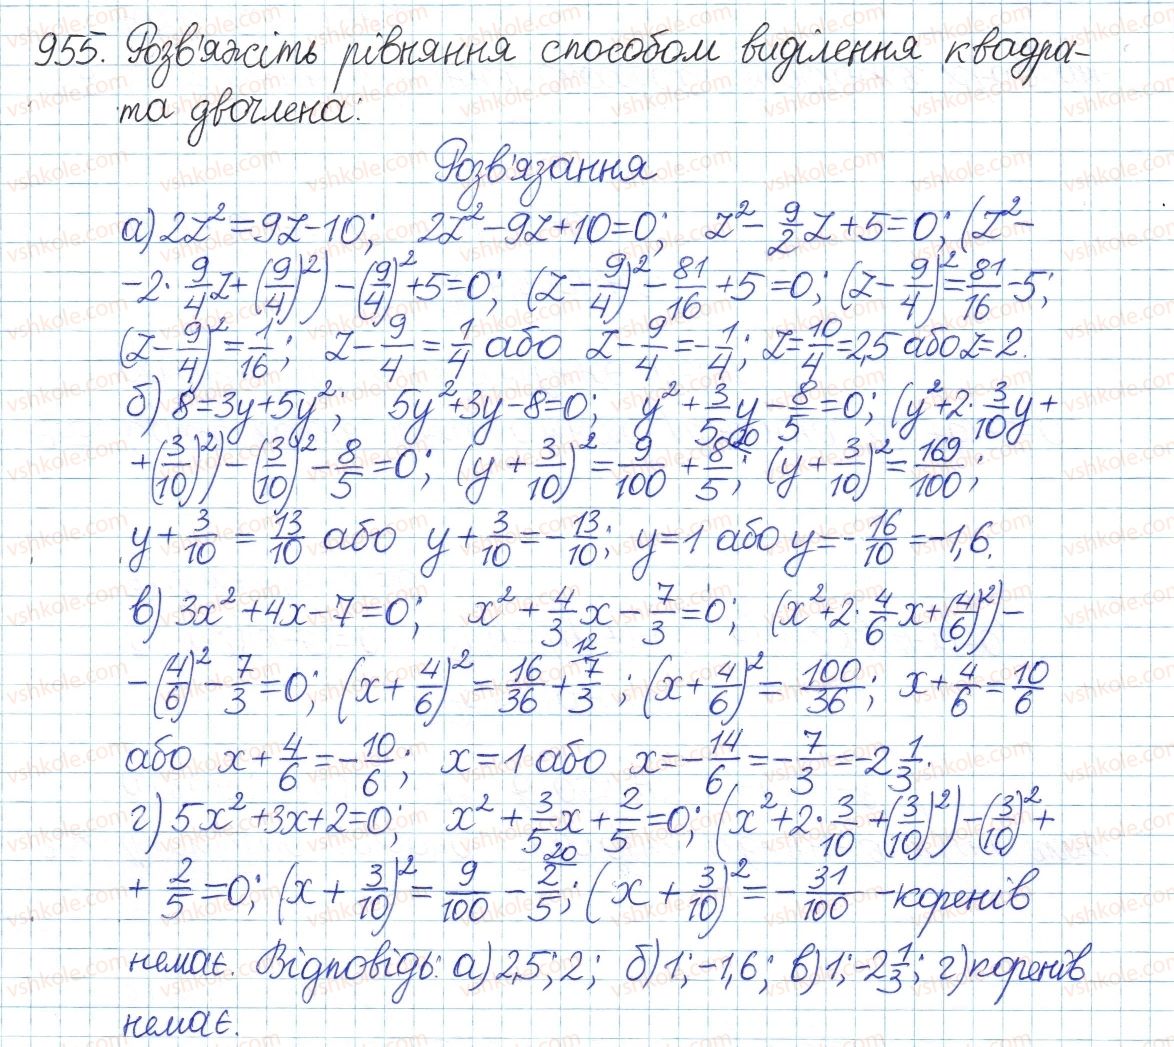 955. Розв'яжіть рівняння способом виділення квадра-
та двочлена:
Розв'язання
а) 2z² = 9z - 10; 2z² - 9z + 10 = 0; z² - 9/2 z + 5 = 0; (z² -
- 2 · 9/4 z + (9/4)²) - (9/4)² + 5 = 0; (z - 9/4)² - 81/16 + 5 = 0; (z - 9/4)² = 81/16 - 5;
(z - 9/4)² = 1/16; z - 9/4 = 1/4 або z - 9/4 = -1/4; z = 10/4 = 2,5 або z = 2.
б) 8 = 3y + 5y²; 5y² + 3y - 8 = 0; y² + 3/5 y - 8/5 = 0; (y² + 2 · 3/10 y +
+ (3/10)²) - (3/10)² - 8/5 = 0; (y + 3/10)² = 9/100 + 8/5 \20; (y + 3/10)² = 169/100;
y + 3/10 = 13/10 або y + 3/10 = -13/10; y = 1 або y = -16/10 = -1,6.
в) 3x² + 4x - 7 = 0; x² + 4/3 x - 7/3 = 0; (x² + 2 · 4/6 x + (4/6)²) -
- (4/6)² - 7/3 = 0; (x + 4/6)² = 16/36 + 7/3 \12; (x + 4/6)² = 100/36; x + 4/6 = 10/6
або x + 4/6 = -10/6; x = 1 або x = -14/6 = -7/3 = -2 1/3.
г) 5x² + 3x + 2 = 0; x² + 3/5 x + 2/5 = 0; (x² + 2 · 3/10 + (3/10)²) - (3/10)² +
+ 2/5 = 0; (x + 3/10)² = 9/100 - 2/5 \20; (x + 3/10)² = -31/100 - коренів
немає. Відповідь: а) 2,5; 2; б) 1; -1,6; в) 1; -2 1/3; г) коренів
немає.